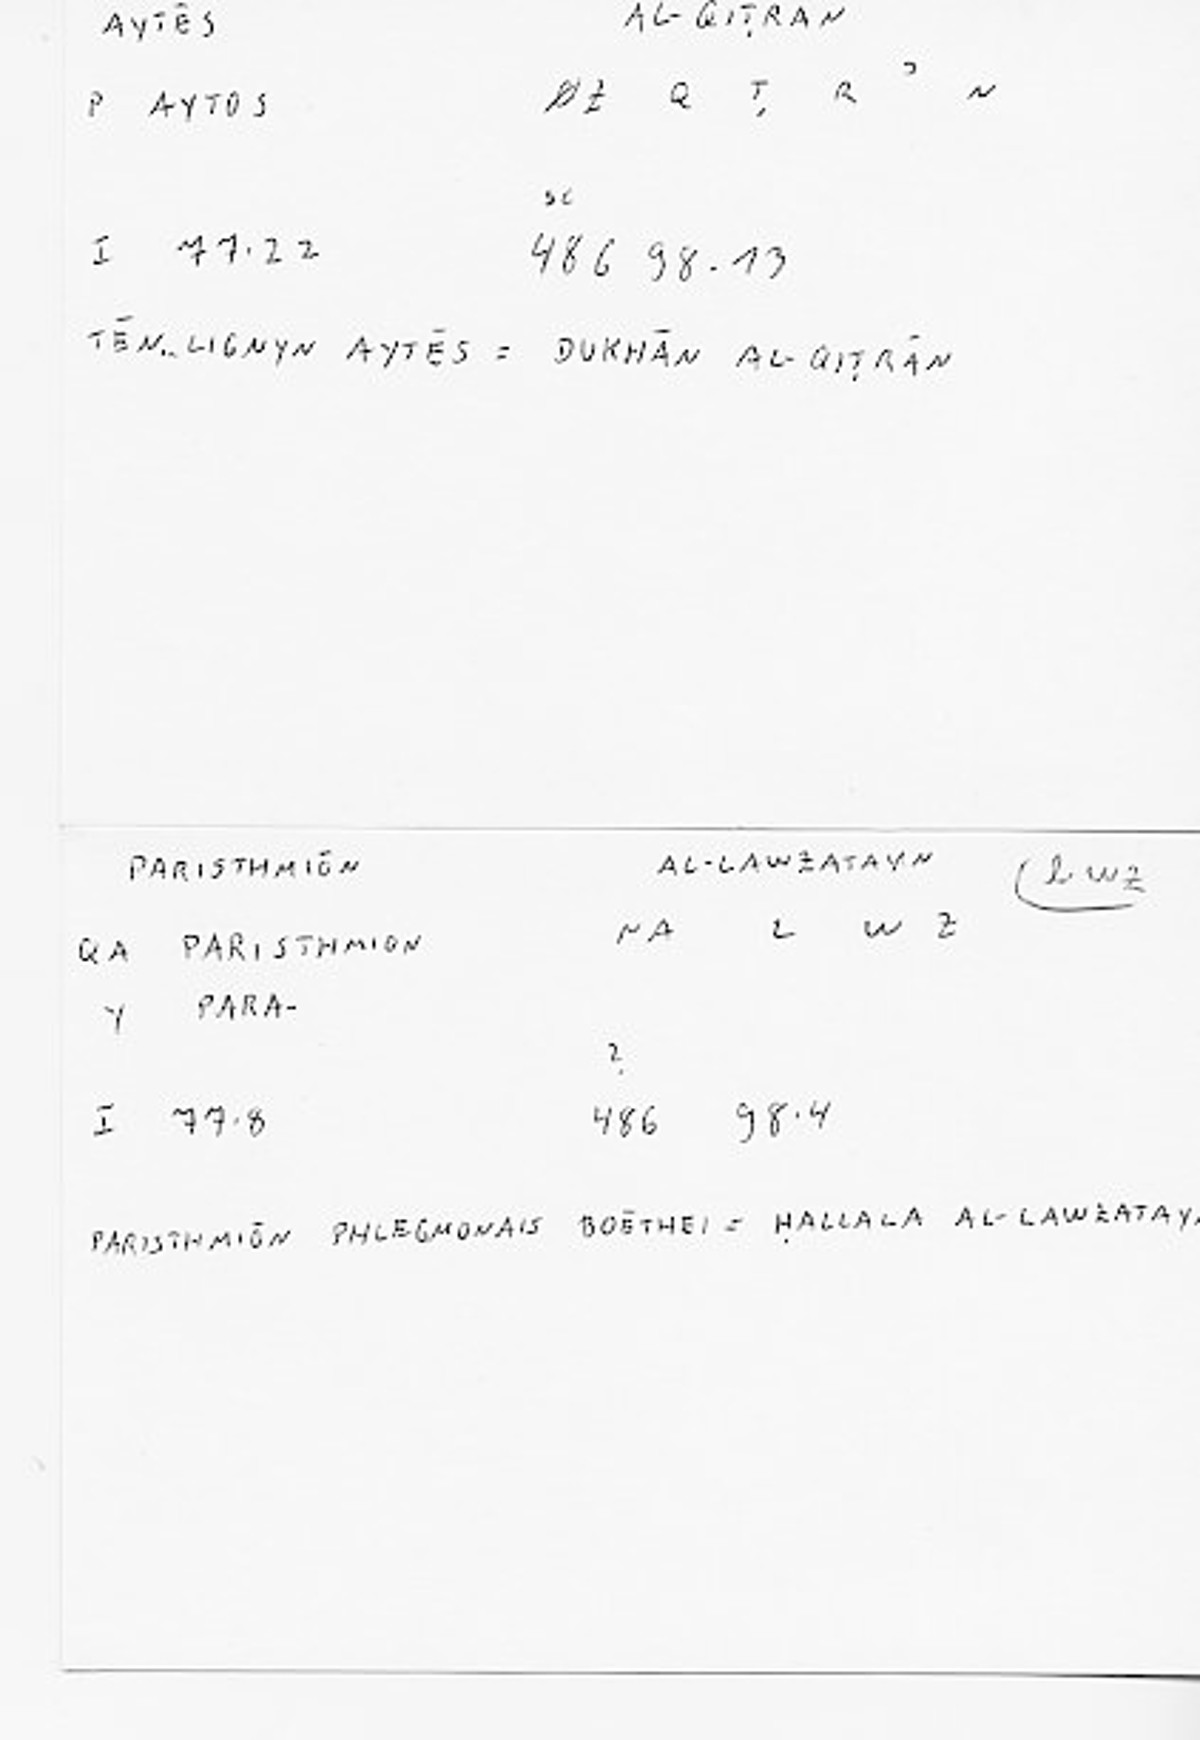 AYTĒS AL-QIṬRAN
P AYTOS Q Ṭ R ʾ N
sc
I 77.22 486 98.13
TĒN.. LIGNYN AYTĒS = DUKHĀN AL-QIṬRĀN
PARISTHMIŌN AL-LAWZATAYN (lwz
QA PARISTHMION NA L W Z
Y PARA-
?
I 77.8 486 98.4
PARISTHMIŌN PHLEGMONAIS BOĒTHEI = ḤALLALA AL-LAWZATAYN